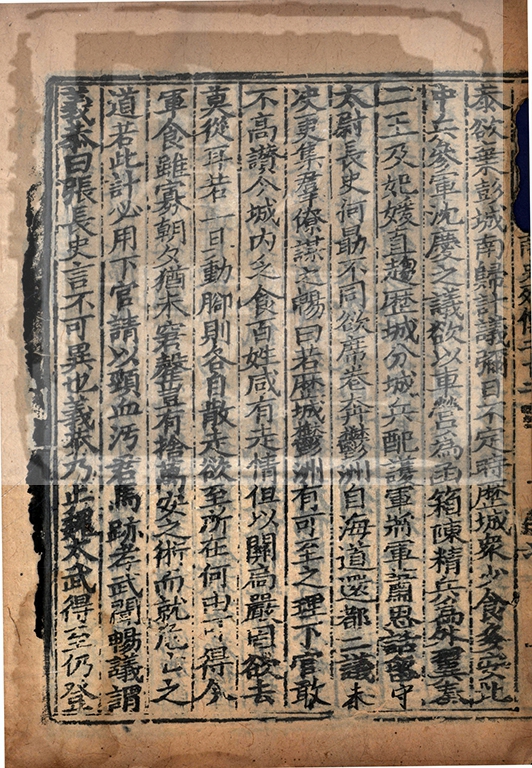 恭欲棄彭城南歸計議彌日不定時歷城衆少食多安北
中兵參軍沈慶之議欲以車營爲函箱陳精兵爲外翼奉
二王及妃媛直趨歷城分城兵配護軍將軍蕭思話留守
太尉長史何勗不同欲席卷奔鬱洲自海道還都二議未
决更集羣僚謀之暢曰若歷城鬱洲有可至之理下官敢
不高讃今城内乏食百姓咸有走情但以關扃嚴固欲去
莫從耳若一旦動脚則各自散走欲至所在何由可得今
軍食雖寡朝夕猶未窘罄豈有捨萬安之術而就危亡之
道若此計必用下官請以頸血汚君馬跡孝武聞暢議謂
義恭曰張長史言不可異也義恭乃止魏太武得至仍登